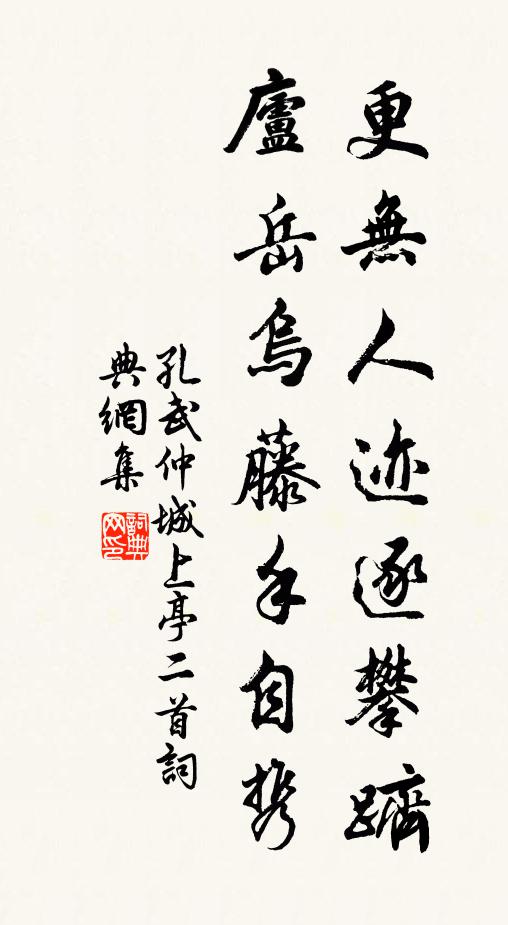 更無人迹逐攀躋
廬岳烏藤手自携
孔武仲城上亭二首詞
典網集
詞典網印